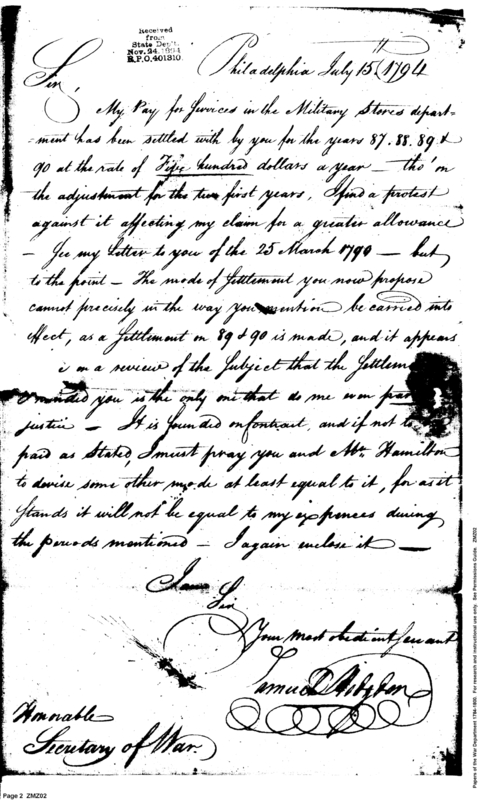 Received
from
State Dep't.
Nov. 24. 1894
R.P.O. 401310.
Philadelphia July 15th 1794
Sir,
My Pay for Services in the Military Stores depart-
-ment has been settled with by you for the years 87. 88. 89 &
90 at the rate of Five hundred dollars a year — tho' on
the adjustment for the two first years, I find a protest
against it affecting my claim for a greater allowance
— See my Letter to you of the 25 March 1790 — but
to the point — The mode of Settlement you now propose
cannot precisely in the way you mention be carried into
effect, as a Settlement on 89 & 90 is made, and it appears
on a review of the Subject that the Settlem
you is the only one that do me even
justice — It is founded on Contract, and if not to
paid as Stated, I must pray you and Mr. Hamilton
to devise some other mode at least equal to it, for as it
Stands it will not be equal to my expences during
the periods mentioned — I again enclose it —
I am
Sir
Your most obedient Servant
Samuel Hodgdon
Honorable
Secretary of War.
Page 2 ZMZ02
Papers of the War Department 1784-1800. For research and instructional use only. See Permissions Guide. ZMZ02